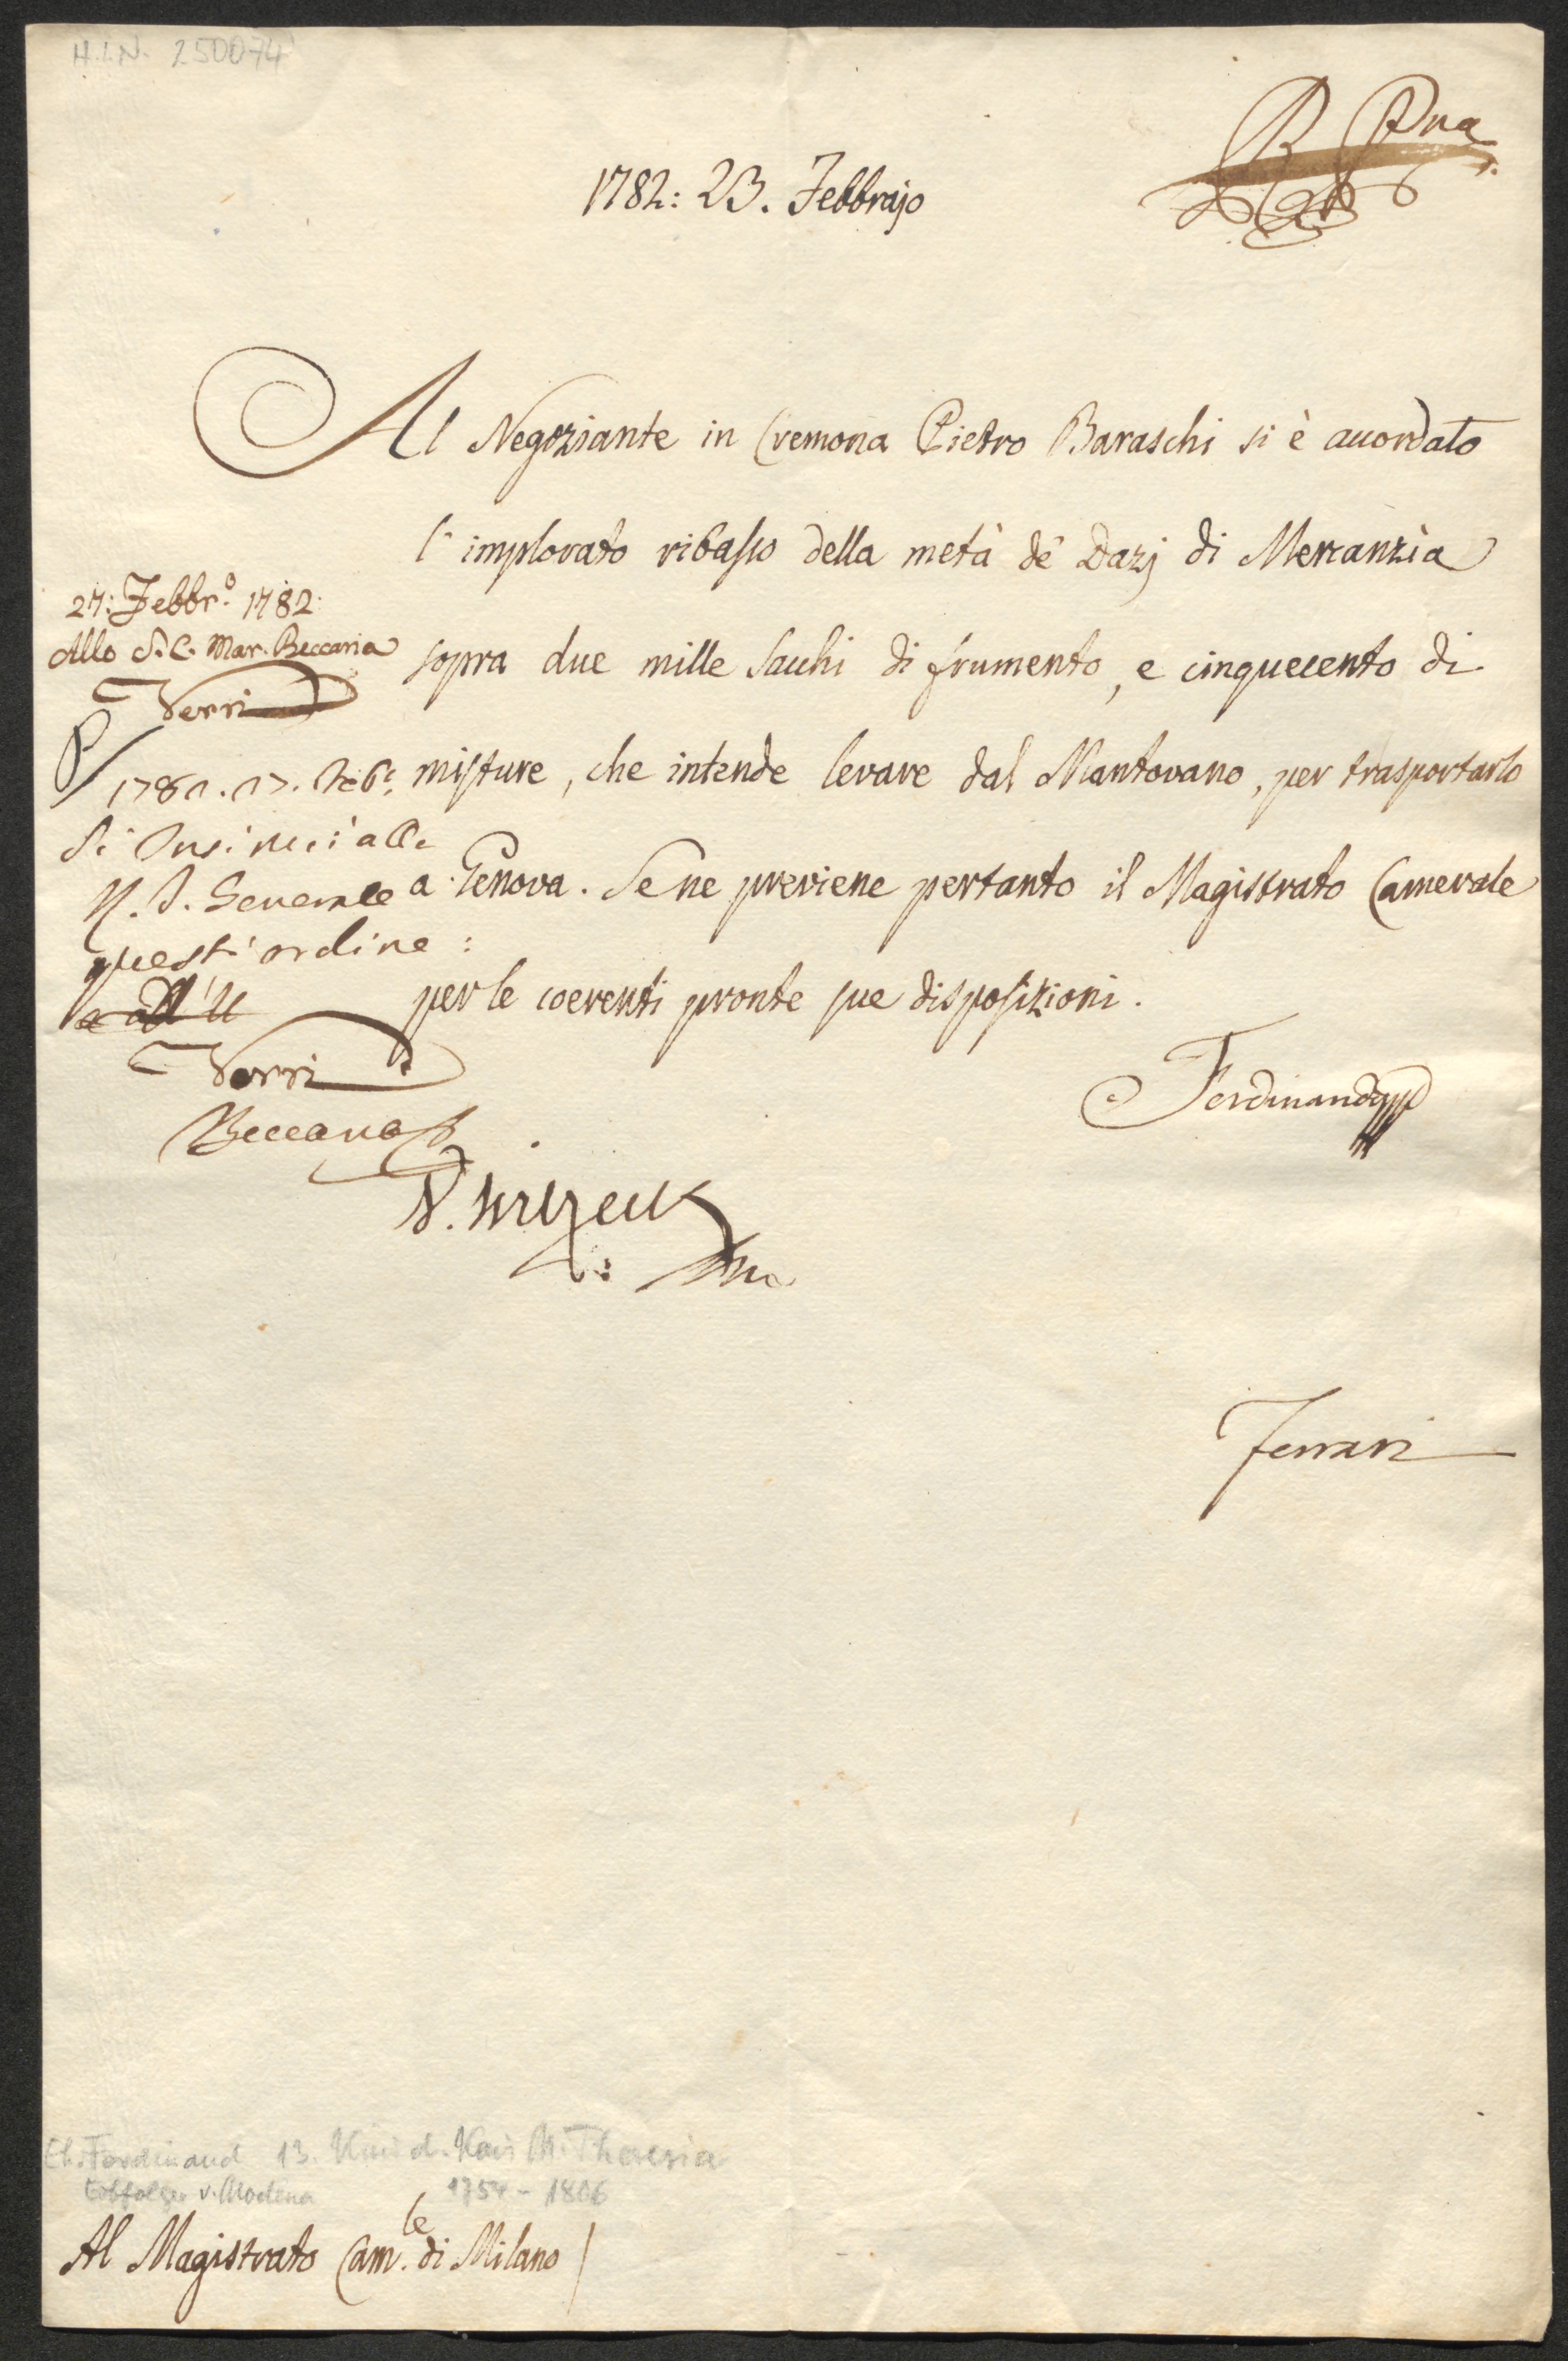 H.I.N. 250074
1782: 23. Febbrajo
Al Negoziante in Cremona Pietro Baraschi si è accordato
l'implorato ribasso della metà de' Dazj di Mercanzia
sopra due mille Sacchi di frumento, e cinquecento di
misture, che intende levare dal Mantovano, per trasportarlo
a Genova. Se ne previene pertanto il Magistrato Camerale
per le coerenti pronte sue disposizioni.
27: Febbr.o 1782:
Allo S. C. Mar. Beccaria
Verri
Si
quest'ordine:
Verri
Beccaria
Ferdinando
Ferrari
Eh. Ferdinand 13. Kind d. Kais M. Theresia
v. Modena 1754 - 1806
Al Magistrato Cam.le di Milano